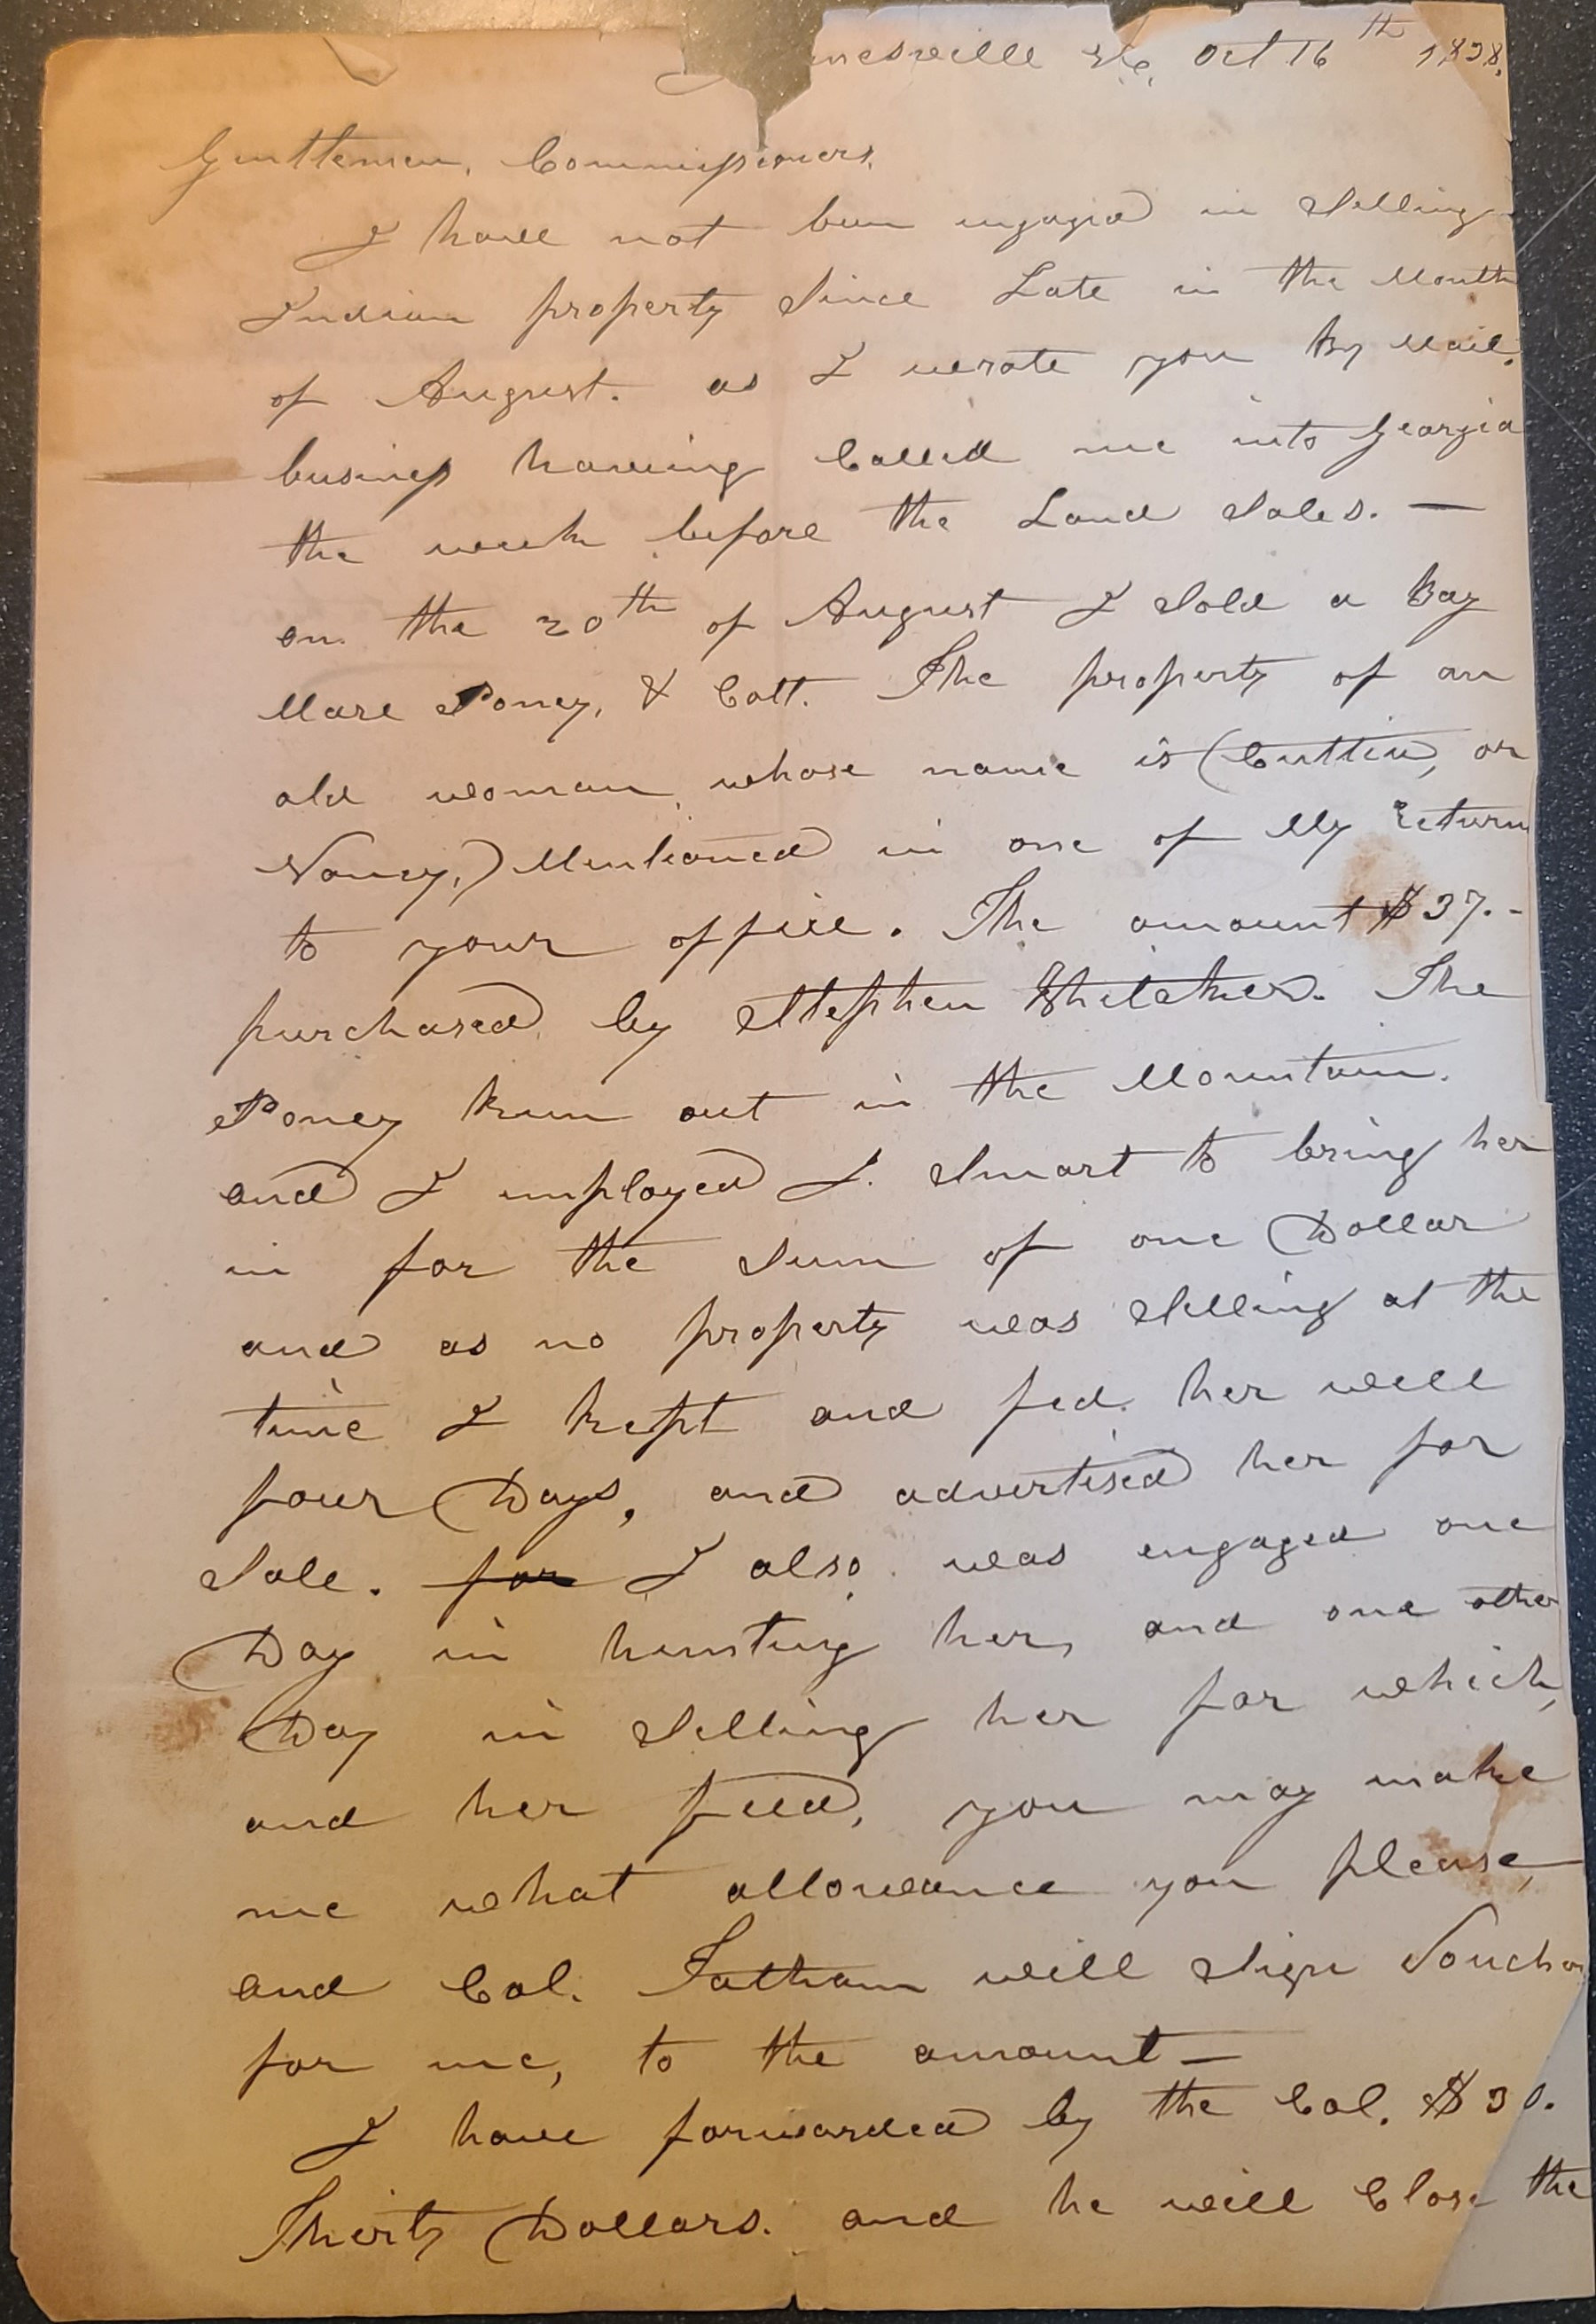 nesville NC, Oct 16th 1838.
Gentlemen, Commissioners,
I have not been engaged in Selling
Indian property Since Late in the Month
of August. as I wrote you By Mail.
business having Called me into Georgia
the week before the Land Sales. —
on the 20th of August I Sold a Bay
Mare Poney, & Colt. The property of an
old woman, whose name is (Cuttin, or
Nancy,) Mentioned in one of My Return
to your office. The amount $37.-
purchased by Stephen Whitaker. The
Poney Run out in the Mountain.
and I employed J. Smart to bring her
in for the Sum of one Dollar
and as no property was Selling at the
time I kept and fed her well
four Days, and advertised her for
Sale. for I also was engaged one
Day in hunting her, and one other
Day in Selling her for which,
and her feed, you may make
me what allowance you please,
and Col. Tatham will Sign Voucher
for me, to the amount —
I have forwarded by the Col. $30.
Thirty Dollars. and he will Close the